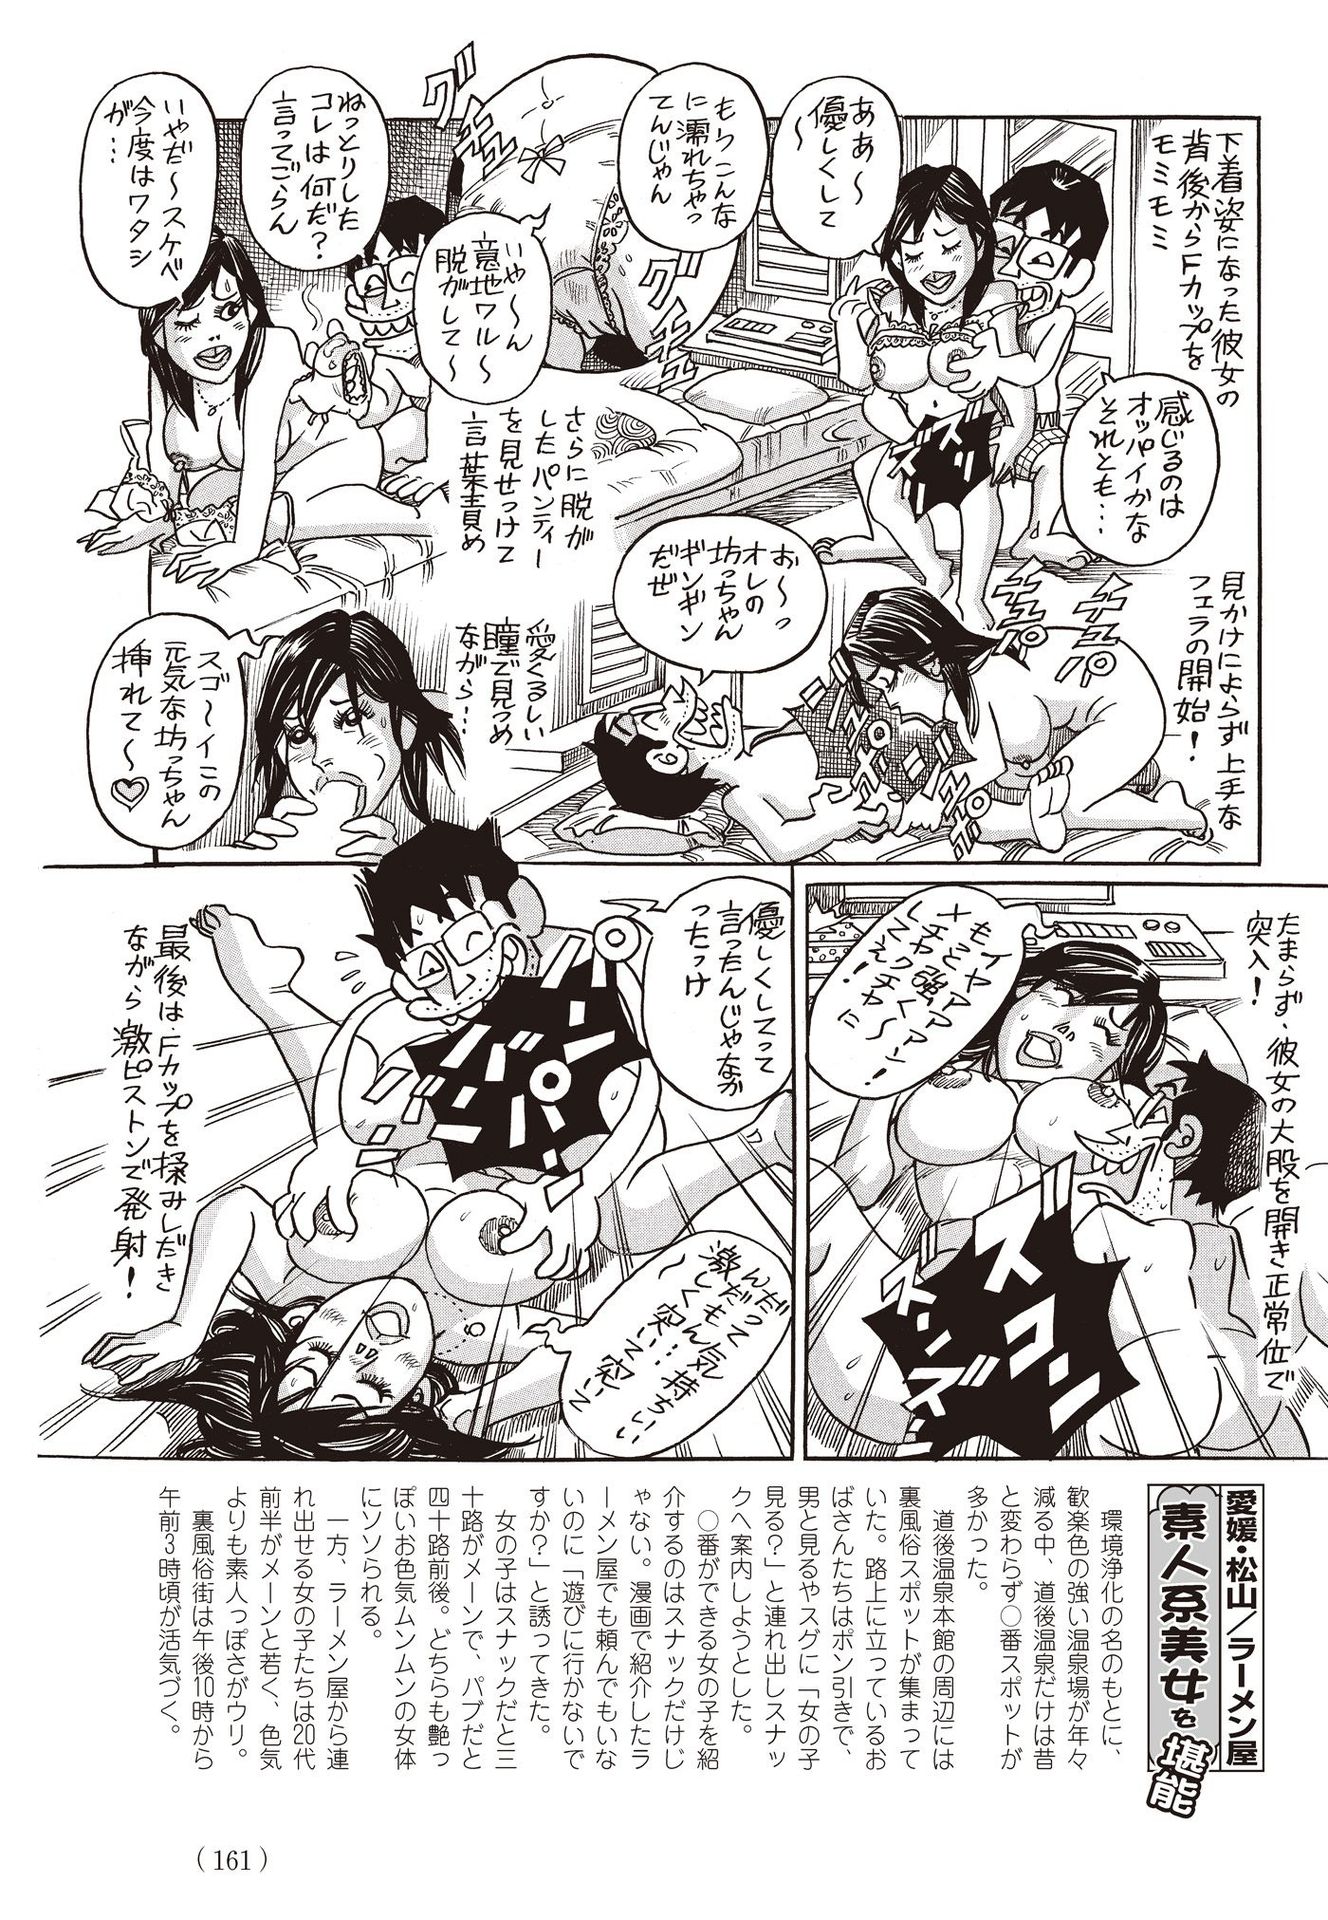 下着姿になった彼女の
背後からFカップを
モミモミ
ああ～
優しくして
～
もうこんな
に濡れちゃっ
てんじゃん
感じるのは
オッパイかな
それとも…
ズリ
ズリ
グギュ
グギュ
いや～ん
意地ワル～
脱がして～
さらに脱が
したパンティー
を見せつけて
言葉責め
ねっとりした
コレは何だ？
言ってごらん
いやだ～スケベ
今度はワタシ
が…
見かけによらず上手な
フェラの開始！
チュパ
チュパ
お～っ
オレの
坊っちゃん
ギンギン
だぜ
愛くるしい
瞳で見つめ
ながら…
スゴ～イこの
元気な坊っちゃん
挿れて～♡
たまらず、彼女の大股を開き正常位で
突入！
イヤァァァン
もっと強く～
メチャクチャに
してえ！
ズコン
ズンズン
優しくしてって
言ったんじゃなか
ったっけ
パンパン
んだって
激だもん気持ちいい
しく突いて突いて
～
最後は、Fカップを揉みしだき
ながら激ピストンで発射！
愛媛・松山／ラーメン屋
素人系美女を堪能
環境浄化の名のもとに、
歓楽色の強い温泉場が年々
減る中、道後温泉だけは昔
と変わらず○番スポットが
多かった。
道後温泉本館の周辺には
裏風俗スポットが集まって
いた。路上に立っているお
ばさんたちはポン引きで、
男と見るやスグに「女の子
見る？」と連れ出しスナッ
クへ案内しようとした。
○番ができる女の子を紹
介するのはスナックだけじ
ゃない。漫画で紹介したラ
ーメン屋でも頼んでもいな
いのに「遊びに行かないで
すか？」と誘ってきた。
女の子はスナックだと三
十路がメーンで、パブだと
四十路前後。どちらも艶っ
ぽいお色気ムンムンの女体
にソソられる。
一方、ラーメン屋から連
れ出せる女の子たちは20代
前半がメーンと若く、色気
よりも素人っぽさがウリ。
裏風俗街は午後10時から
午前3時頃が活気づく。
（161）